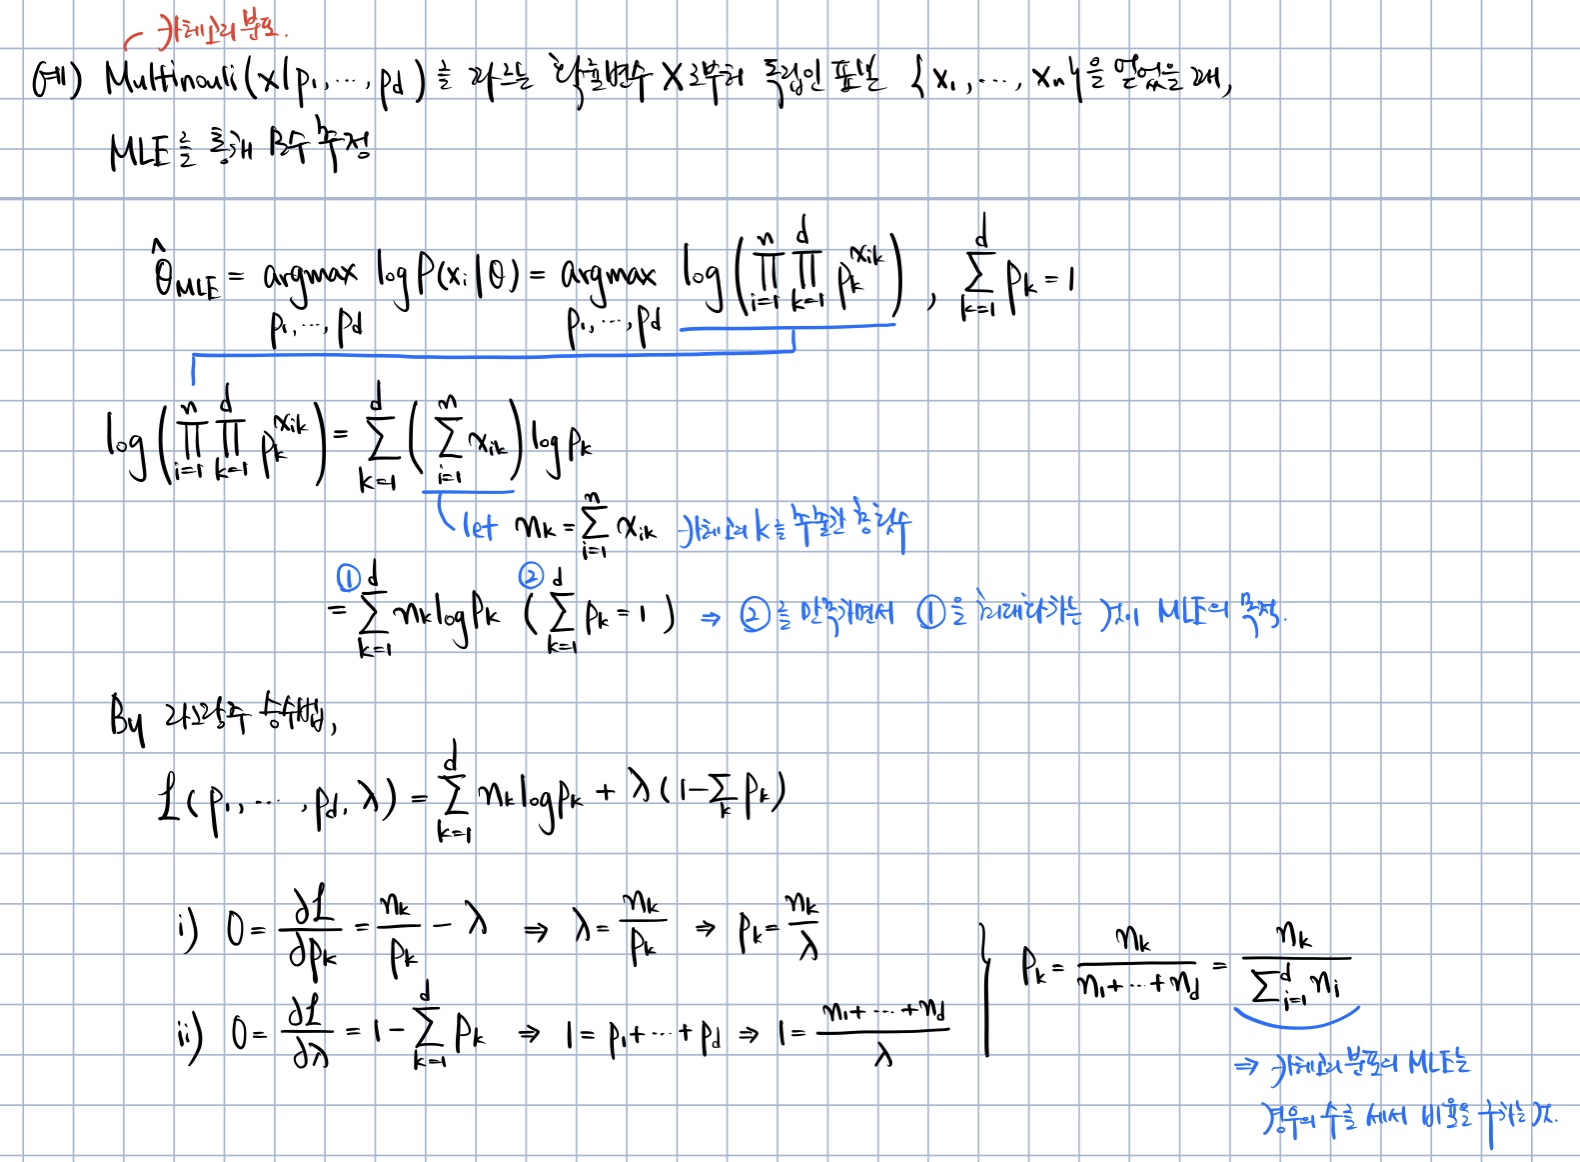 카테고리 분포.
예) Multinouli(x|p₁,⋯,p_d)를 따르는 확률변수 X로부터 독립인 표본 {x₁,⋯,xₙ}을 얻었을 때,
MLE를 통해 모수 추정
θ̂_MLE = argmax_{p₁,⋯,p_d} log P(x_i|θ) = argmax_{p₁,⋯,p_d} log(∏_{i=1}^{n} ∏_{k=1}^{d} p_k^{x_ik}), ∑_{k=1}^{d} p_k = 1
log(∏_{i=1}^{n} ∏_{k=1}^{d} p_k^{x_ik}) = ∑_{k=1}^{d} (∑_{i=1}^{n} x_ik) log p_k
let n_k = ∑_{i=1}^{n} x_ik 카테고리 k를 추출한 총 횟수
= ① ∑_{k=1}^{d} n_k log p_k ② (∑_{k=1}^{d} p_k = 1) ⇒ ②를 만족하면서 ①을 최대화하는 것이 MLE의 목적.
By 라그랑주 승수법,
ℒ(p₁,⋯,p_d, λ) = ∑_{k=1}^{d} n_k log p_k + λ(1-∑_k p_k)
i) 0 = ∂ℒ/∂p_k = n_k/p_k - λ ⇒ λ = n_k/p_k ⇒ p_k = n_k/λ
ii) 0 = ∂ℒ/∂λ = 1 - ∑_{k=1}^{d} p_k ⇒ 1 = p₁+⋯+p_d ⇒ 1 = (n₁+⋯+n_d)/λ
p_k = n_k/(n₁+⋯+n_d) = n_k/∑_{i=1}^{d} n_i
⇒ 카테고리 분포의 MLE는
경우의 수를 세서 비율을 구하는 것.